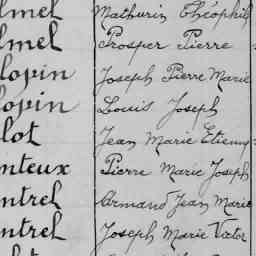 lmel Mathurin Théophile
lmel Prosper Pierre
lopin Joseph Pierre Marie
lopin Louis Joseph
lot Jean Marie Etienne
nteux Pierre Marie Joseph
ntrel Armand Jean Marie
ntrel Joseph Marie Victor